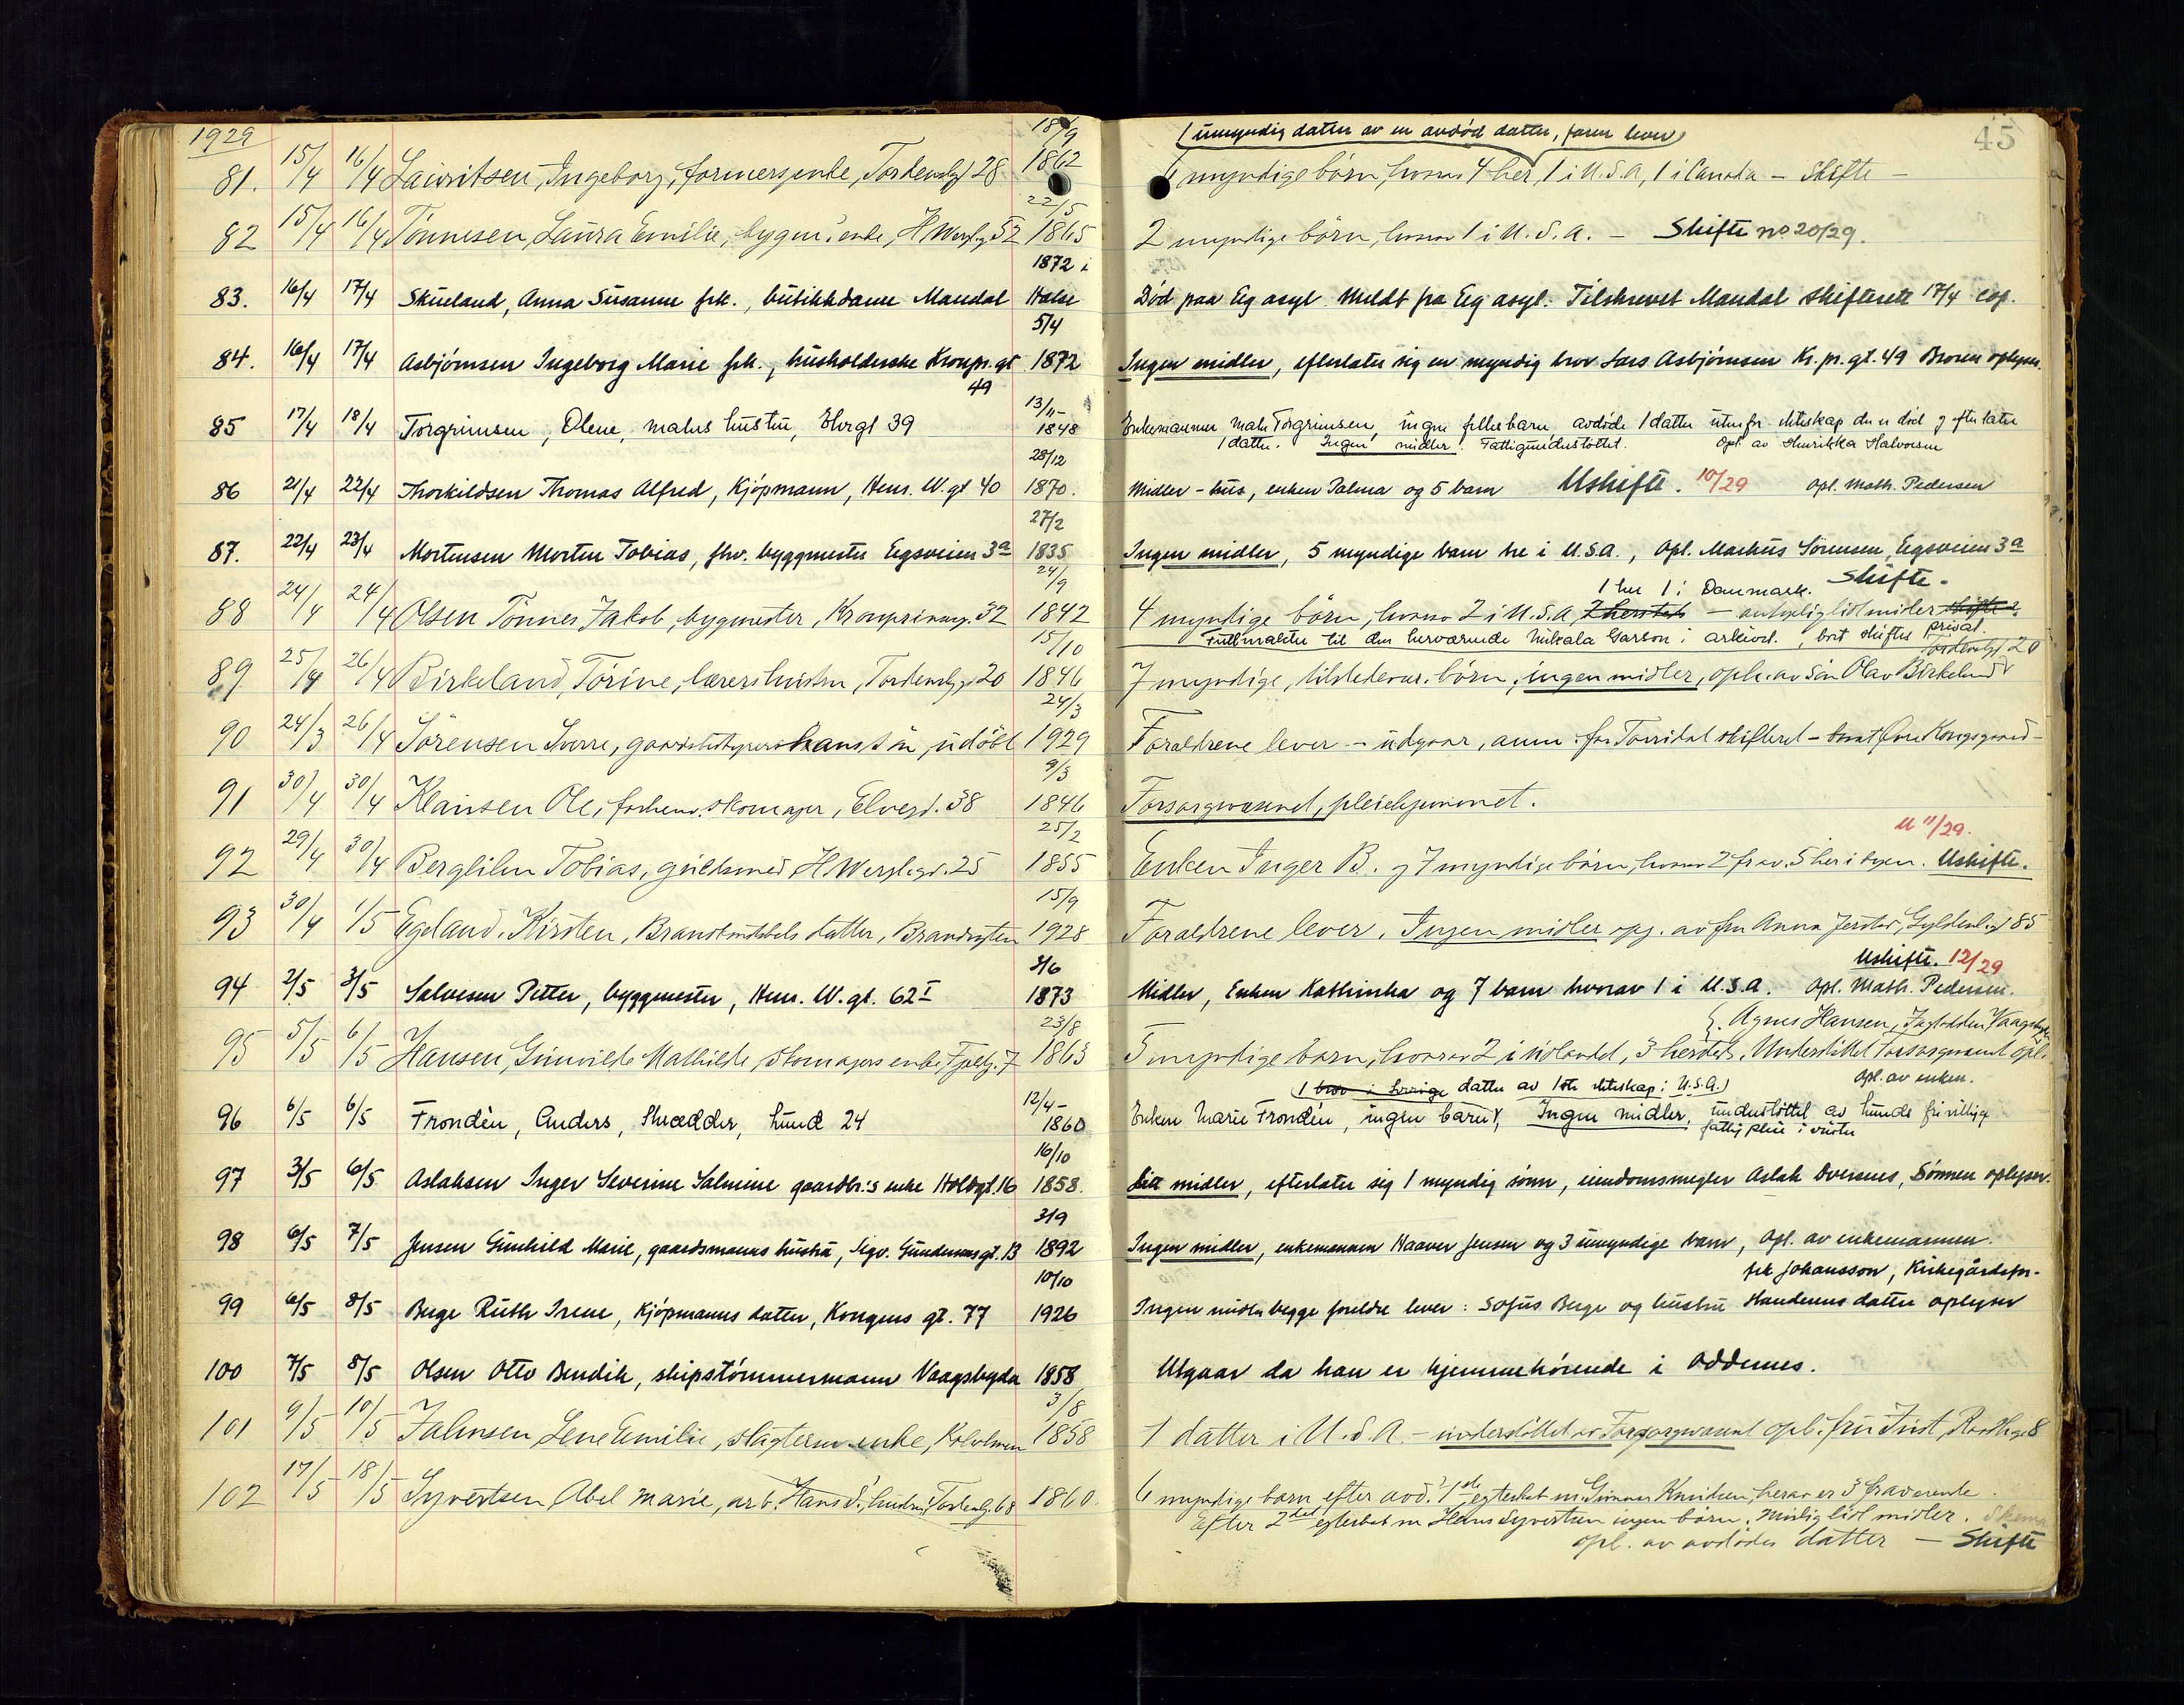 1929
45
18/9
(1 umyndig datter av en avdød datter, faren lever)
81. 15/4 16/4 Lauritsen, Ingeborg, formersenke, Tordenskjgt 28 1862 6 myndige børn, hvorav 4 her, 1 i U.S.A, 1 i Canada – Skifte –
22/5
82 15/4 16/4 Tönnesen, Laura Emilie, bygm. enke, H Wergl.g 52 1865 2 myndige børn, hvorav 1 i U.S.A. – Skifte no 20/29.
1872 i
83. 16/4 17/4 Skueland, Anna Susanne frk., butikkdame Mandal Halse Død paa Eg asyl. Meldt fra Eg asyl. Tilskrevet Mandal skifterett 17/4 cop.
5/4
84. 16/4 17/4 Asbjørnsen Ingeborg Marie frk., husholderske Kronpr.gt 1872 Ingen midler, efterlater sig en myndig bror Lars Asbjørnsen Kr.pr.gt. 49 Broren oplyser.
49
13/11
85 17/4 18/4 Torgrimsen, Olene, malers hustru, Elvegt 39 1848 Enkemannen maler Torgrimsen, ingen fellesbarn, avdøde 1 datter utenfor ekteskap den er død og efterlater
1 datter. Ingen midler. Fattigunderstøttet. Opl. av Henrikka Halvorsen
28/12
86 21/4 22/4 Thorkildsen Thomas Alfred, Kjøpmann, Henr. W. gt 40 1870. Midler – hus, enken Salma og 5 barn Uskifte. 10/29 Opl. Math. Pedersen
27/2
87. 22/4 23/4 Mortensen Morten Tobias, fhv. byggmester Egsveien 3a 1835 Ingen midler, 5 myndige barn tre i U.S.A., Opl. Markus Sørensen, Egsveien 3a
24/9
1 her 1 i Danmark. Skifte.
88 24/4 24/4 Olsen Tønnes Jakob, bygmester, Kronprinsensg. 32 1842 4 myndige börn, hvorav 2 i U.S.A, 2 hersteds – antagelig litt midler skifte?
Fullmakter til den herværende Mikala Larson i arkivet., bort skiftes privat.
15/10
Tordenskjgt 20
89 25/4 26/4 Birkeland, Torine, lærers hustru, Tordenskjgt 20 1846 7 myndige, tilstedevær. børn, ingen midler, opl. av sön Olav Birkeland
24/3
90 24/3 26/4 Sörensen Sverre, gaardsbestyrers sön, udöbt 1929 Foraldrene lever – udgaar, anm. fra Torridal skifteret –
9/3
91 30/4 30/4 Klausen Ole, forhenv. skomager, Elvegt. 38 1846 Forsorgvæsenet, pleiehjemmet.
25/2
U 11/29.
92 29/4 30/4 Berglihn Tobias, guldsmed H Wergl.gt. 25 1855 Enken Inger B. og 7 myndige börn, hvorav 2 frav. 5 her i byen. Uskifte.
15/9
93 30/4 1/5 Egeland, Kirsten, Brandkonstabels datter, Brandvagten 1928 Foraldrene lever. Ingen midler opg. av fru Anna Jerstad, Gyldenl.gt 85
3/6
Uskifte. 12/29
94 2/5 3/5 Salvesen Petter, byggmester, Henr. W. gt. 62 I 1873 Midler, Enken Kathinka og 7 barn hvorav 1 i U.S.A. Opl. Math. Pedersen.
23/8
Agnes Hansen, Vaagsbygd
95 5/5 6/5 Hansen, Gunvilde Mathilde, skomagers enke, 7 1863 5 myndige barn, hvorav 2 i utlandet, 3 hersteds. Understöttet Forsorgsvæsenet opl.
(1 bror i Sverige datter av 1ste ekteskap i U.S.A.) Opl. av enken.
12/4
96 6/5 6/5 Frondèn, Anders, Skrædder, Lund 24 1860 Enken Marie Frondèn, ingen barn, Ingen midler, understøttet av Lunds frivillige
fattigpleie i vinter
16/10
97 3/5 6/5 Aslaksen Inger Severine Salmine gaardbr.s enke Holbgt. 16 1858. Litt midler, efterlater sig 1 myndig sønn, eiendomsmegler Aslak Dversnes, Sønnen oplyser.
3/9
98 6/5 7/5 Jensen Gunhild Marie, gaardsmanns hustru, Sigv. Gundersensgt. 13 1892 Ingen midler, enkemannen Haaver Jensen og 3 umyndige barn, Opl. av enkemannen.
10/10
frk Johansson, Kirkegårdsfor-
99 6/5 8/5 Berge Ruth Irene, Kjøpmanns datter, Kongens gt. 77 1926 Ingen midler begge foreldre lever: Sofus Berge og hustru Handerens datter oplyser
100 7/5 8/5 Olsen Otto Bendik, skipstømmermann Vaagsbygda 1858 Utgaar da han er hjemmehørende i Oddernes.
3/8
101 9/5 10/5 Jahnsen Lene Emilie, slagterm. enke, Kobolmen 1858 1 datter i U.S.A. – understöttet av Forsorgvæsenet opl. fru Just, Raadhgt 8
102 17/5 18/5 Syvertsen, Abel Marie, arb. Hans S. hustru, Tordenskjg. 68 1860. 6 myndige barn efter avd. 1ste egteskab m. Gunnar Knudsen, herav er 3 fraværende.
Efter 2det egteskab m Hans Syvertsen ingen børn. Mulig litt midler.
opl. av avdødes datter – Skifte